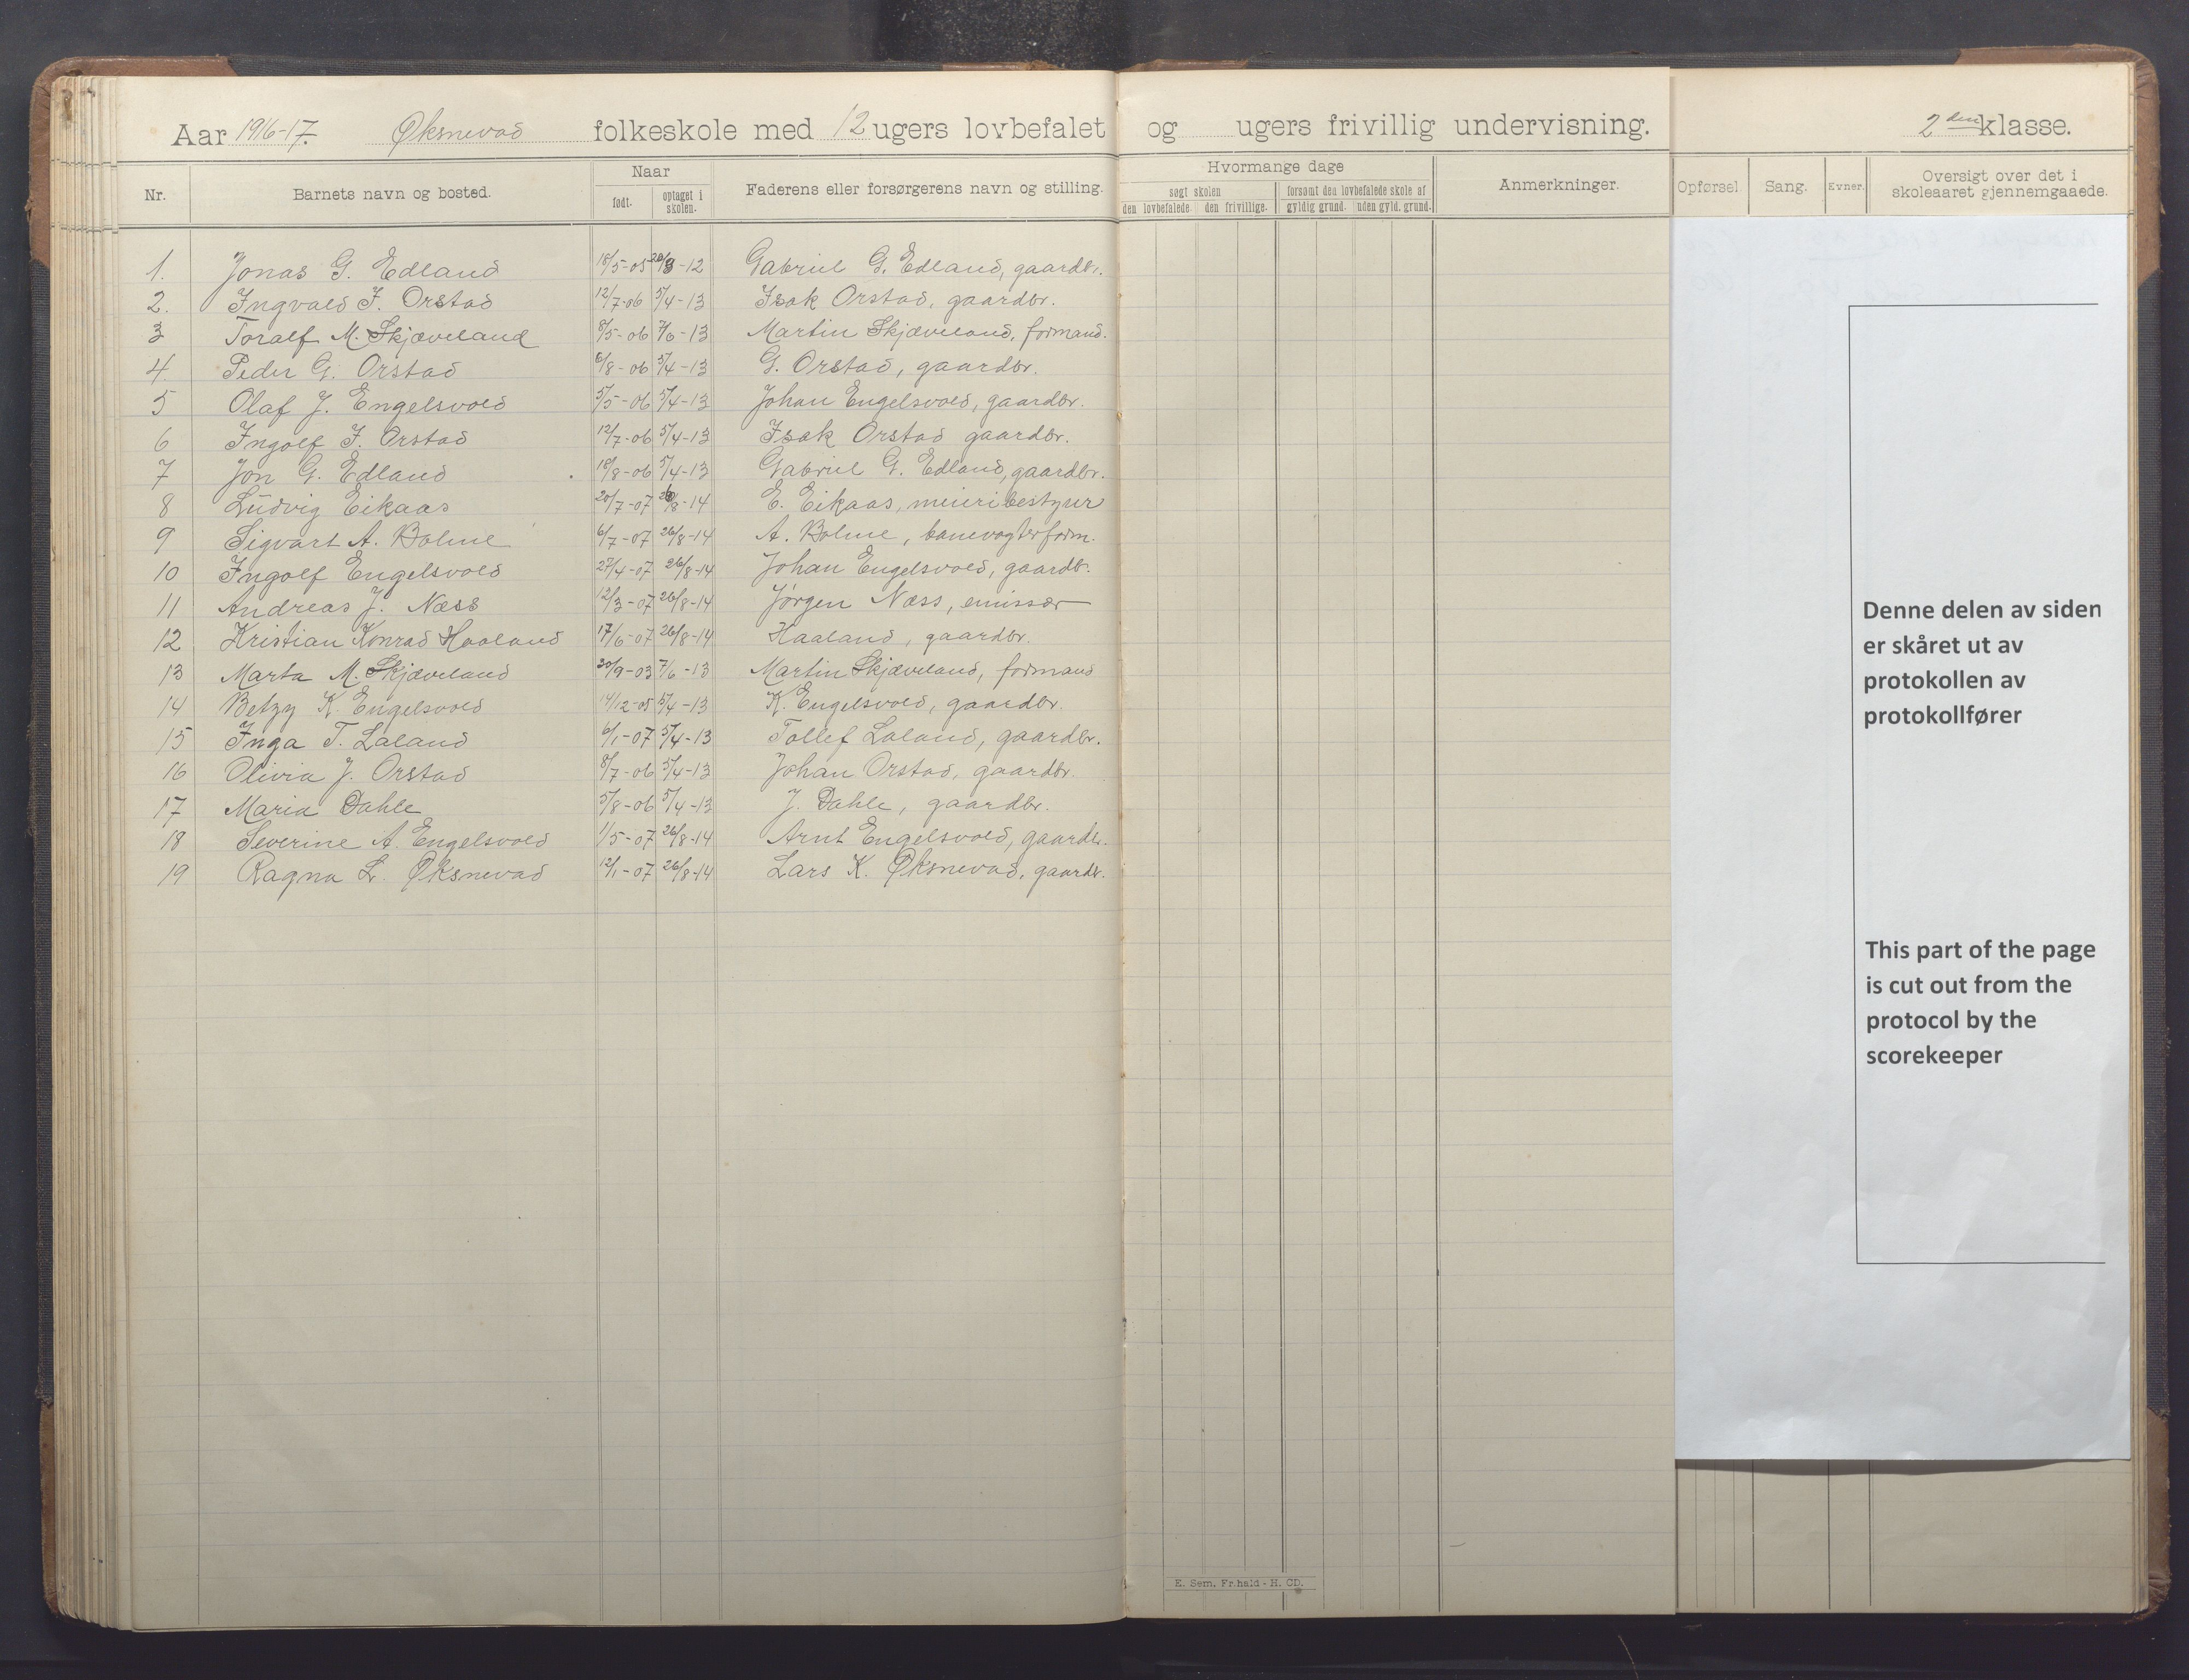 Aar 1916-17. Øksnevad folkeskole med 12 ugers lovbefalet og ugers frivillig undervisning. 2den klasse.
Nr. Barnets navn og bosted. Naar Faderens eller forsørgerens navn og stilling. Hvormange dage Anmerkninger. Opførsel Sang. Evner. Oversigt over det i skoleaaret gjennemgaaede.
født. optaget i skolen. søgt skolen forsømt den lovbefalede skole af
den lovbefalede. den frivillige. gyldig grund. uden gyld. grund.
1. Jonas G. Edland 18/5-05 /8-12 Gabriel G. Edland, gaardbr.
2. Ingvald I. Orstad 12/7-06 5/4-13 Isak Orstad, gaardbr.
3 Toralf M. Skjæveland 8/5-06 7/6-13 Martin Skjæveland, formand.
4. Peder G. Orstad 6/8-06 5/4-13 G. Orstad, gaardbr.
5 Olaf J. Engelsvold 5/5-06 5/4-13 Johan Engelsvold, gaardbr.
6 Ingolf I. Orstad 12/7-06 5/4-13 Isak Orstad gaardbr.
7 Jon G. Edland 18/8-06 5/4-13 Gabriel G. Edland, gaardbr.
8 Ludvig Eikaas 20/7-07 26/8-14 E. Eikaas, meieribestyrer
9 Sigvart A. Bolme 6/7-07 26/8-14 A. Bolme, banevogterform.
10 Ingolf Engelsvold 27/4-07 26/8-14 Johan Engelsvold, gaardb.
11 Andreas J. Næss 12/3-07 26/8-14 Jørgen Næss, emissær
12 Kristian Konrad Haaland 17/6-07 26/8-14 Haaland, gaardbr.
13 Marta M. Skjæveland 20/9-03 7/6-13 Martin Skjæveland, formand
14 Betzy K. Engelsvold 14/12-05 5/4-13 K. Engelsvold, gaardbr.
15 Inga T. Laland 6/1-07 5/4-13 Tollef Laland, gaardbr.
16 Olivia J. Orstad 8/7-06 5/4-13 Johan Orstad, gaardbr
17 Maria Dahle 5/8-06 5/4-13 J. Dahle, gaardbr.
18 Severine A. Engelsvold 1/5-07 26/8-14 Arnt Engelsvold, gaardb.
19 Ragna L. Øksnevad 12/1-07 26/8-14 Lars K. Øksnevad, gaardbr.
Denne delen av siden
er skåret ut av
protokollen av
protokollfører
This part of the page
is cut out from the
protocol by the
scorekeeper
E. Sem, Fr.hald - H. CD.